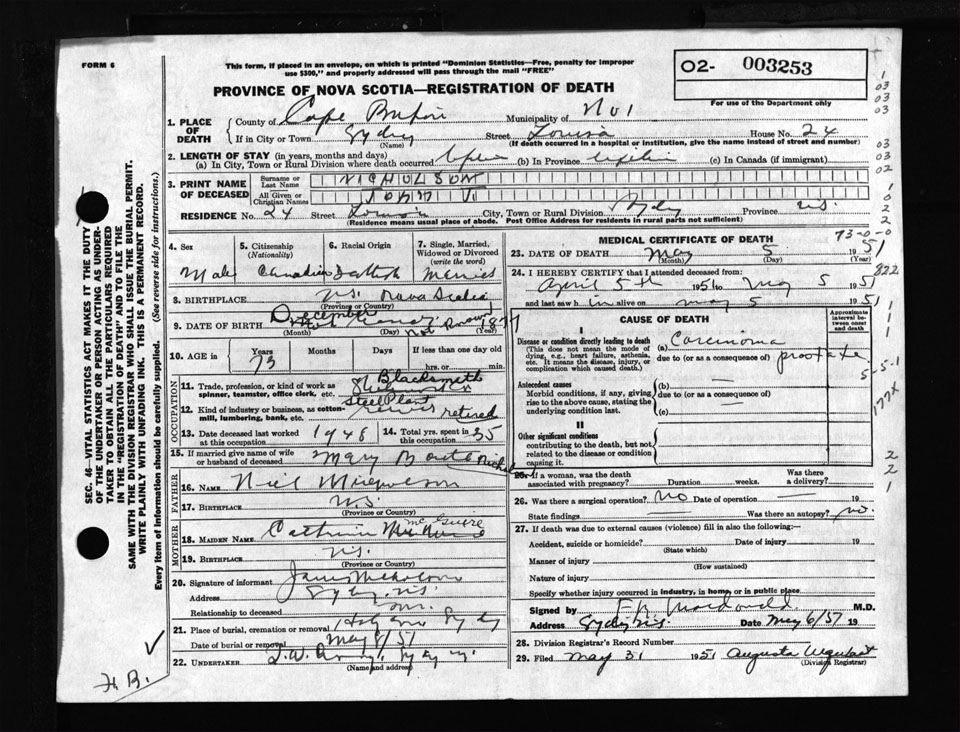 FORM 6
This form, if placed in an envelope, on which is printed "Dominion Statistics—Free, penalty for improper
use $300," and properly addressed will pass through the mail "FREE"
O2- 003253
For use of the Department only
PROVINCE OF NOVA SCOTIA—REGISTRATION OF DEATH
1. PLACE OF DEATH
County of Cape Breton Municipality of No 1
If in City or Town Sydney Street Louisa House No. 24
(Name) (If death occurred in a hospital or institution, give the name instead of street and number)
2. LENGTH OF STAY (in years, months and days)
(a) In City, Town or Rural Division where death occurred (b) In Province (c) In Canada (if immigrant)
3. PRINT NAME OF DECEASED
Surname or Last Name NICHOLSON
All Given or Christian Names JOHN
RESIDENCE No. 24 Street Louisa City, Town or Rural Division Sydney Province N.S.
(Residence means usual place of abode. Post Office Address for residents in rural parts not sufficient)
4. Sex
Male
5. Citizenship (Nationality)
Canadian
6. Racial Origin
7. Single, Married, Widowed or Divorced (write the word)
Married
8. BIRTHPLACE N.S. Nova Scotia
(Province or Country)
9. DATE OF BIRTH December not known 1877
(Month) (Day) (Year)
10. AGE in Years Months Days If less than one day old
73 hrs. or min.
OCCUPATION
11. Trade, profession, or kind of work as spinner, teamster, office clerk, etc. Blacksmith
12. Kind of industry or business, as cotton-mill, lumbering, bank, etc. Steel Plant retired
13. Date deceased last worked at this occupation 1948
14. Total yrs. spent in this occupation 35
15. If married give name of wife or husband of deceased Mary
FATHER
16. NAME
17. BIRTHPLACE N.S.
(Province or Country)
MOTHER
18. MAIDEN NAME
19. BIRTHPLACE N.S.
(Province or Country)
20. Signature of informant James Nicholson
Address Sydney, N.S.
Relationship to deceased
21. Place of burial, cremation or removal Sydney
Date of burial or removal May 8/51
22. UNDERTAKER
(Name and address)
MEDICAL CERTIFICATE OF DEATH
73-0-0
23. DATE OF DEATH May 5 1951
(Month) (Day) (Year)
24. I HEREBY CERTIFY that I attended deceased from
April 5th 1951 to May 5 1951
and last saw h im alive on May 5 1951
CAUSE OF DEATH
Approximate interval between onset and death
I
Disease or condition directly leading to death
(This does not mean the mode of dying, e.g., heart failure, asthenia, etc. It means the disease, injury, or complication which caused death.)
(a) Carcinoma
due to (or as a consequence of) prostate
Antecedent causes
Morbid conditions, if any, giving rise to the above cause, stating the underlying condition last.
(b) —
due to (or as a consequence of)
(c)
II
Other significant conditions
contributing to the death, but not related to the disease or condition causing it.
25. If a woman, was the death associated with pregnancy? Duration weeks. Was there a delivery?
26. Was there a surgical operation? no Date of operation — 19
State findings Was there an autopsy? no.
27. If death was due to external causes (violence) fill in also the following:—
Accident, suicide or homicide? Date of injury 19
(State which)
Manner of injury
(How sustained)
Nature of injury
Specify whether injury occurred in industry, in home, or in public place
Signed by Macdonald M.D.
Address Sydney N.S. Date May 6/51 19
28. Division Registrar's Record Number
29. Filed May 31 1951 Augusta Urquhart
(Division Registrar)
SEC. 46—VITAL STATISTICS ACT MAKES IT THE DUTY
OF THE UNDERTAKER OR PERSON ACTING AS UNDER-
TAKER TO OBTAIN ALL THE PARTICULARS REQUIRED
IN THE "REGISTRATION OF DEATH" AND TO FILE THE
SAME WITH THE DIVISION REGISTRAR WHO SHALL ISSUE THE BURIAL PERMIT.
WRITE PLAINLY WITH UNFADING INK. THIS IS A PERMANENT RECORD.
Every item of information should be carefully supplied. (See reverse side for instructions.)